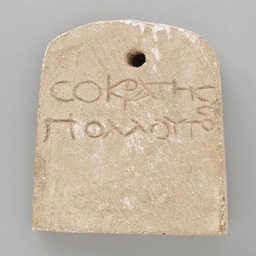 CΟΚΡΑΤΗC
ΠΟΛΛΟΥΤΟ
S